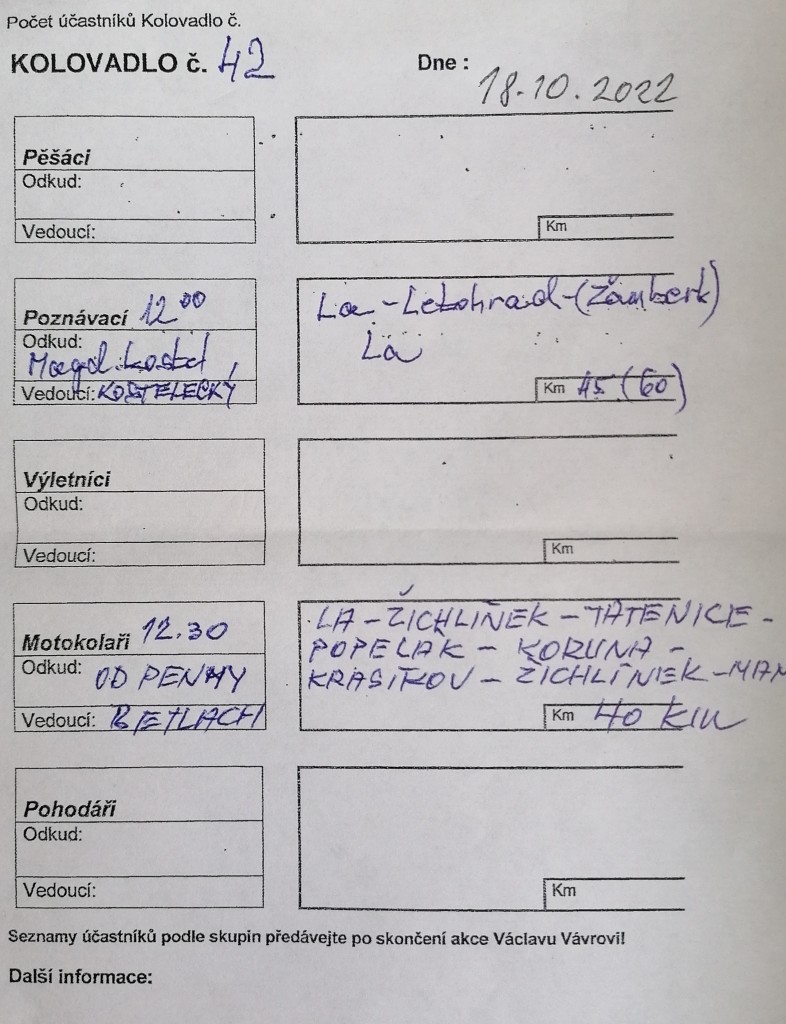 Počet účastníků Kolovadlo č.
KOLOVADLO č. 42
Dne : 18.10.2022
Pěšáci
Odkud:
Vedoucí:
Km
Poznávací 12⁰⁰
La - Letohrad - (Žamberk)
Odkud:
Magd. kostel
La
Vedoucí: KOSTELECKÝ
Km 45 (60)
Výletníci
Odkud:
Vedoucí:
Km
Motokolaři 12.30
LA - ŽICHLÍNEK - TATENICE -
POPELÁK - KORUNA -
Odkud: OD PENNY
KRASÍKOV - ŽICHLÍNEK -
Vedoucí: BETLACH
Km 40 km
Pohodáři
Odkud:
Vedoucí:
Km
Seznamy účastníků podle skupin předávejte po skončení akce Václavu Vávrovi!
Další informace: